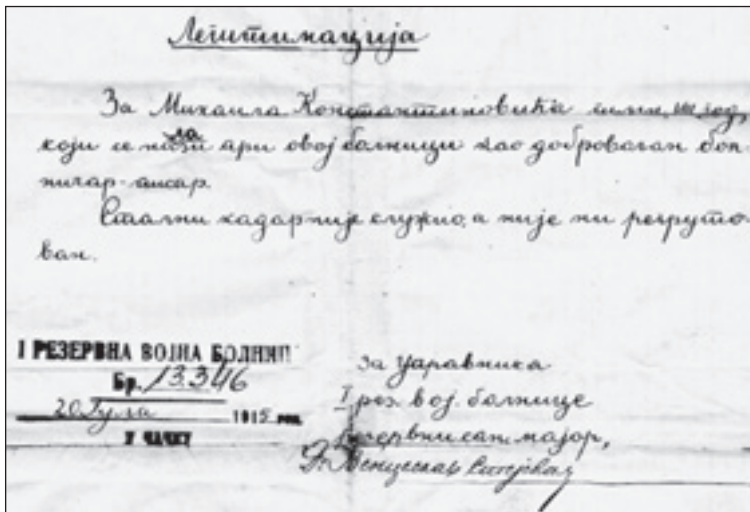 Легитимација
За Михаила Константиновића
који се налази при овој болници као добровољан бол-
ничар-писар.
Стални кадар није служио, а није ни регруто-
ван.
I РЕЗЕРВНА ВОЈНА БОЛНИЦ
Бр. 13.346
20 Јула 1915 год.
У ЧАЧКУ
За Управника
I рез. вој. болнице
резервни сан. мајор,
Др. Венцеслав